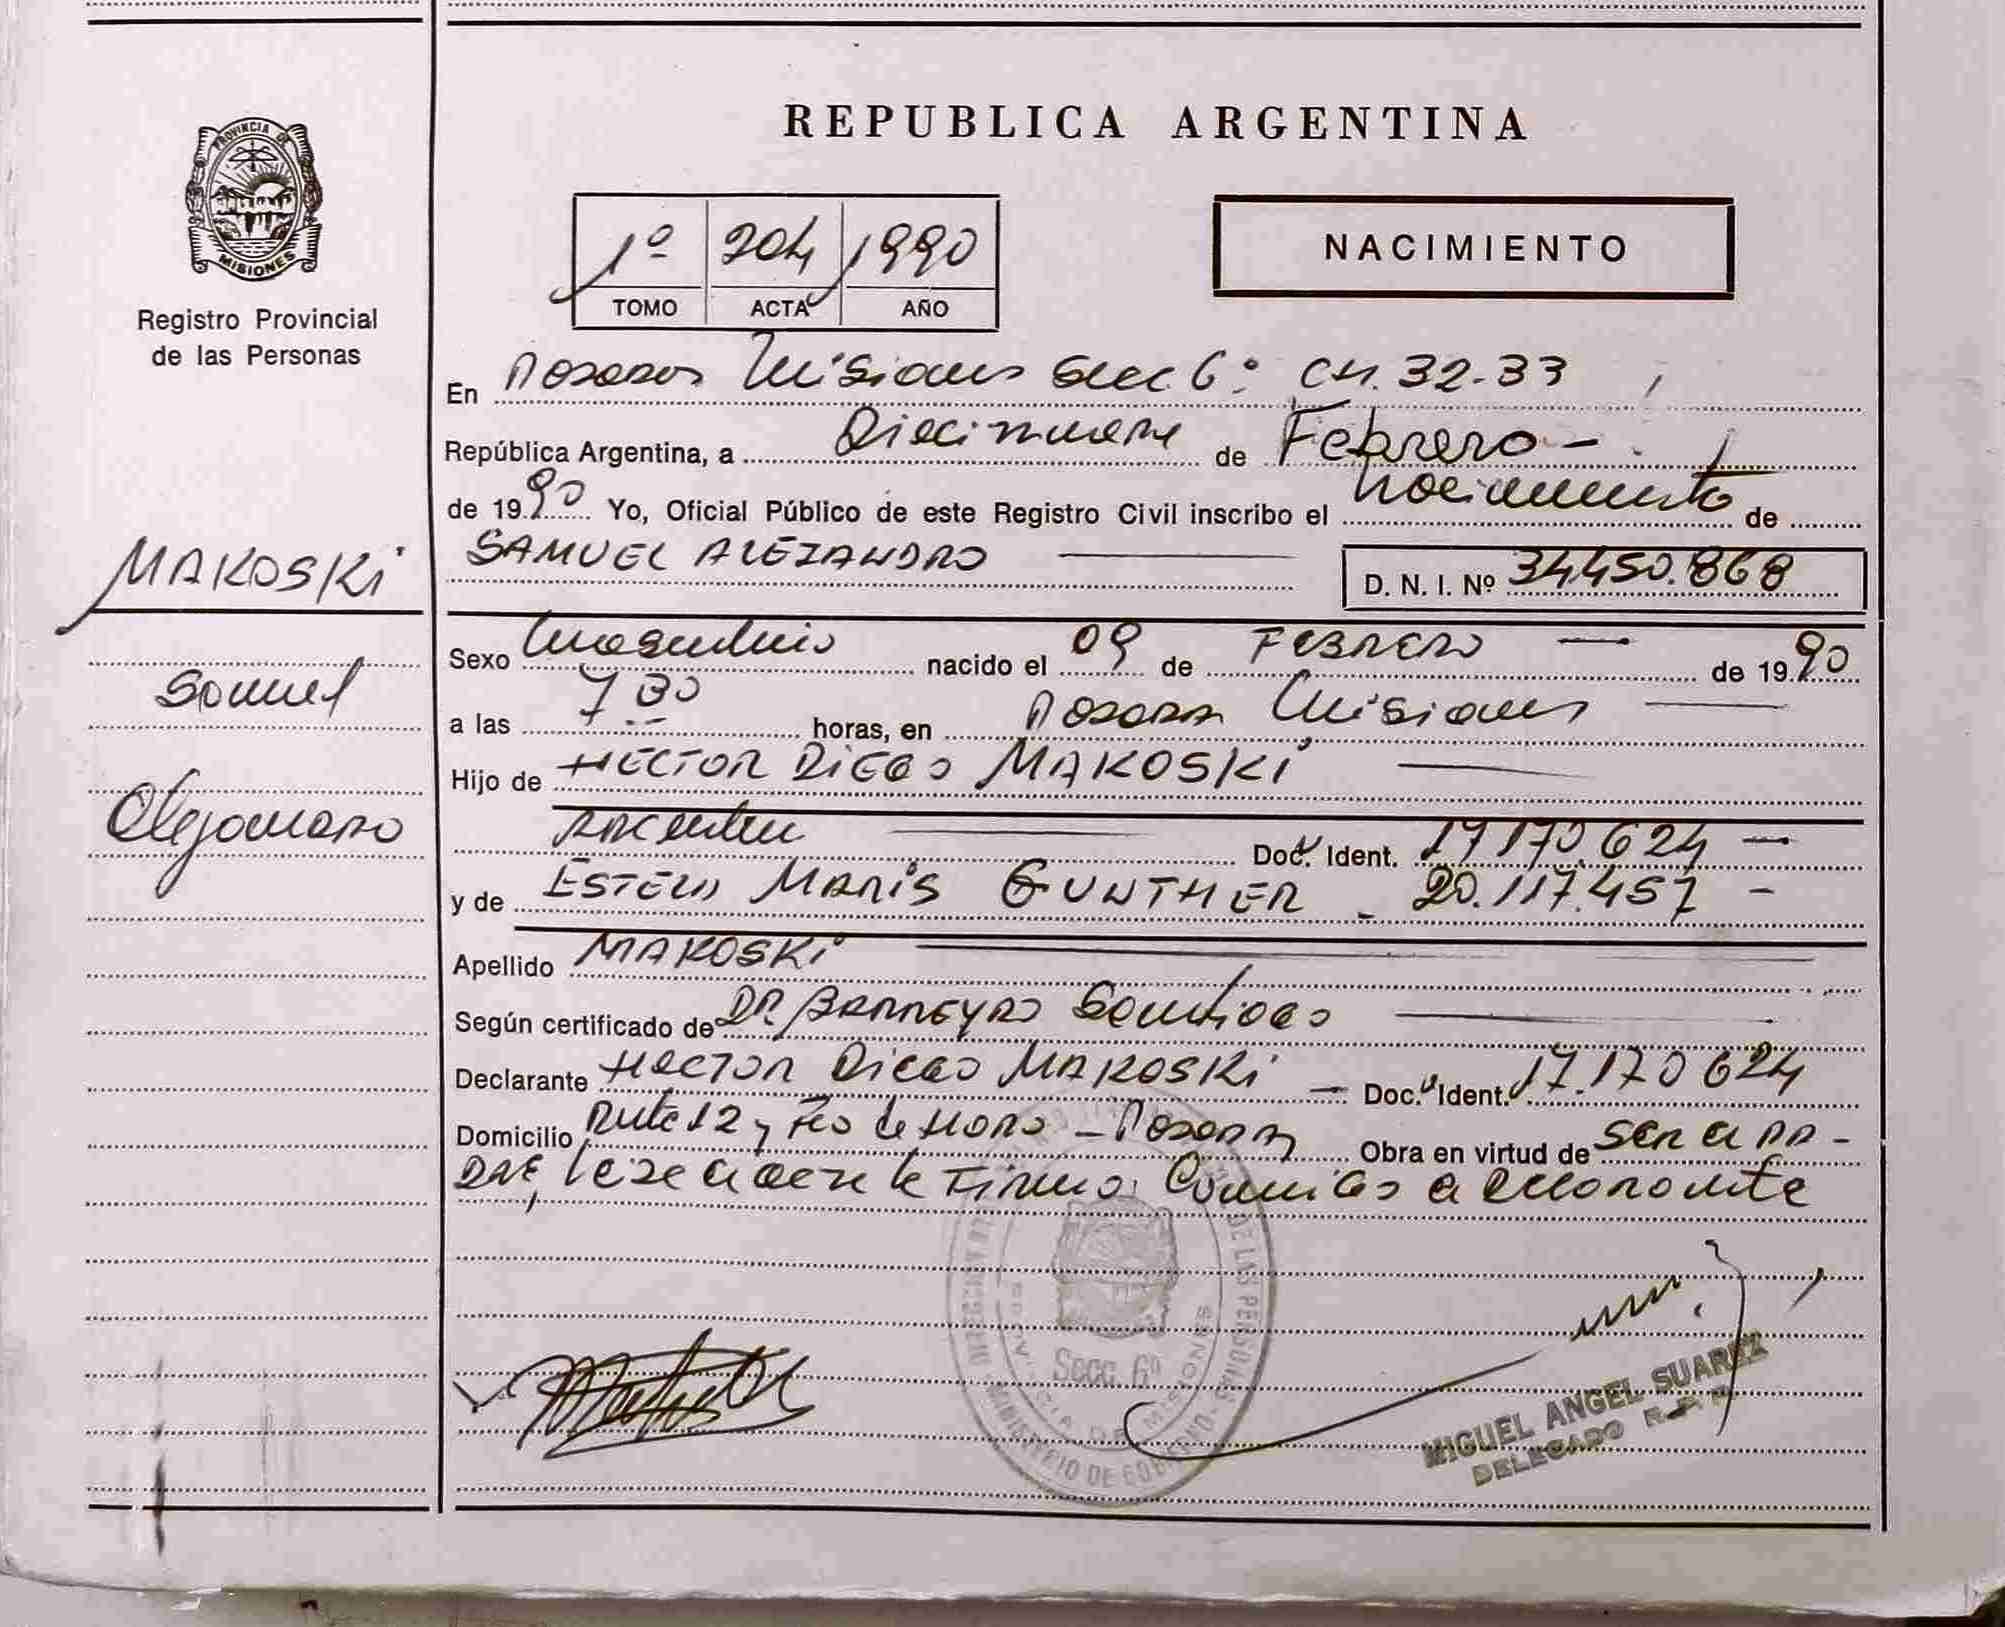 REPUBLICA ARGENTINA
PROVINCIA DE
MISIONES
Registro Provincial
de las Personas
1º 204 1990
TOMO ACTA AÑO
NACIMIENTO
En Posadas Misiones Secc 6º CH. 32-33
República Argentina, a Diecinueve de Febrero -
de 1990 Yo, Oficial Público de este Registro Civil inscribo el nacimiento de
SAMUEL ALEJANDRO D. N. I. Nº 34.450.868
MAKOSKi
Samuel
Alejandro
Sexo masculino nacido el 09 de FEBRERO de 1990
a las 7 30 horas, en Posadas Misiones
Hijo de HECTOR DIEGO MAKOSKi
Doc. Ident. 17.170.624 -
y de ESTELA MARIS GUNTHER - 20.117.457 -
Apellido MAKOSKi
Según certificado de DR BARREYRO Santiago
Declarante HECTOR DIEGO MAKOSKi - Doc. Ident. 17.170 624
Domicilio Ruta 12 y - Posadas Obra en virtud de SER el PA-
DRE, firma
DE LAS PERSONAS
Secc. 6º
PROVINCIA DE MISIONES
MINISTERIO DE GOBIERNO
MIGUEL ANGEL SUAREZ
DELEGADO R. P. P.